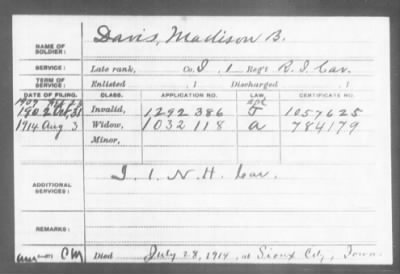 NAME OF SOLDIER: Davis, Madison B.
SERVICE: Late rank, Co. I, 1 Reg't R. I. Cav.
TERM OF SERVICE: Enlisted , 1 Discharged , 1
DATE OF FILING. CLASS. APPLICATION NO. LAW. CERTIFICATE NO.
Invalid, 1292386 J 1057625
1914 Aug 3 Widow, 1032118 a 784179
Minor,
ADDITIONAL SERVICES: I. 1. N. H. Cav.
REMARKS:
Died July 28, 1914, at Sioux City, Iowa